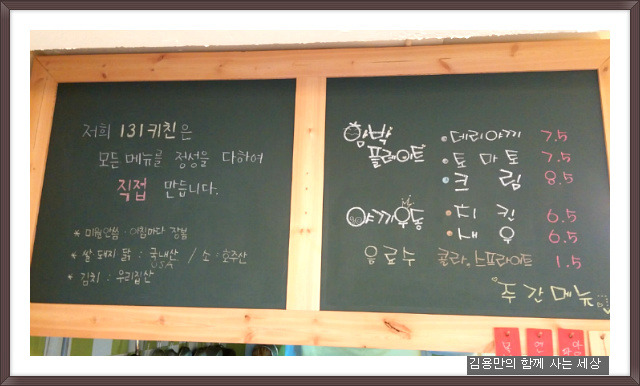 저희 131키친은
모든메뉴를 정성을 다하여
직접 만듭니다.
* 미원안씀 · 아침마다 장봄
* 쌀 돼지 닭 : 국내산 / 소 : 호주산
USA
* 김치 : 우리집산
함박
플레이트
· 데리야끼 7.5
· 토마토 7.5
· 크림 8.5
야끼우동
· 치킨 6.5
· 새우 6.5
음료수 콜라.스프라이트 1.5
주간메뉴
김용만의 함께 사는 세상